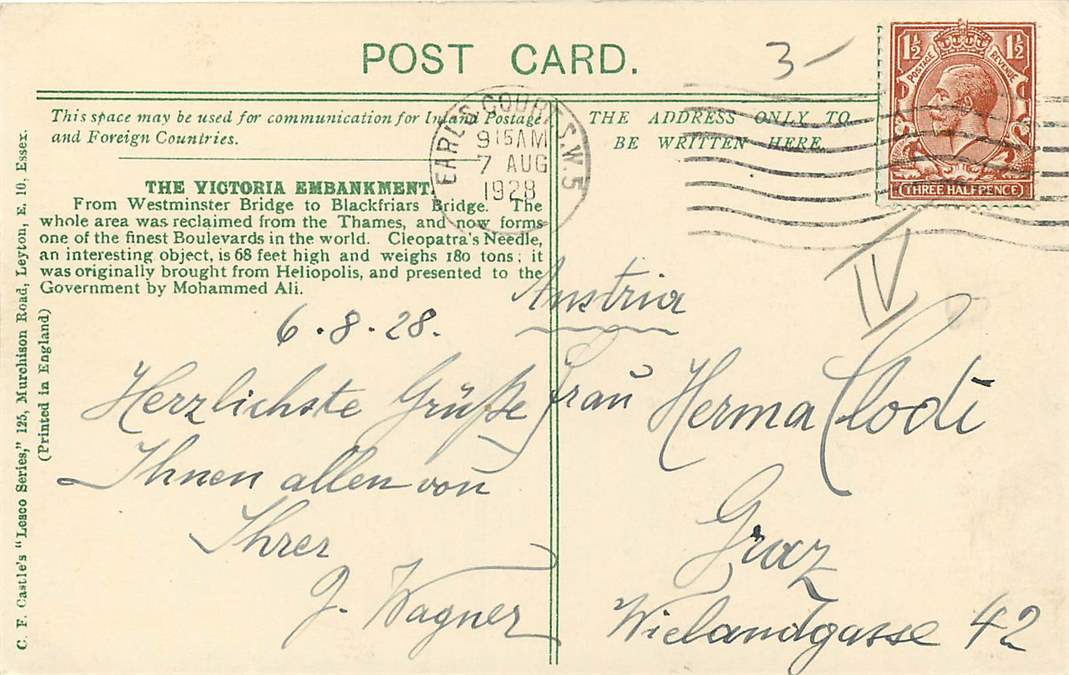 POST CARD.
3-
1½ 1½
POSTAGE REVENUE
THREE HALFPENCE
This space may be used for communication for Inland Postage
and Foreign Countries.
THE ADDRESS ONLY TO
BE WRITTEN HERE.
EARL'S COURT S.W.5
9 15 AM
7 AUG
1928
THE VICTORIA EMBANKMENT.
From Westminster Bridge to Blackfriars Bridge. The
whole area was reclaimed from the Thames, and now forms
one of the finest Boulevards in the world. Cleopatra's Needle,
an interesting object, is 68 feet high and weighs 180 tons; it
was originally brought from Heliopolis, and presented to the
Government by Mohammed Ali.
6.8.28.
Herzlichste Grüße
Ihnen allen von
Ihrer
J. Wagner
Austria
IV
Frau Herma Clodi
Graz
Wielandgasse 42
C. F. Castle's "Lesco Series," 125, Murchison Road, Leyton, E. 10, Essex.
(Printed in England)